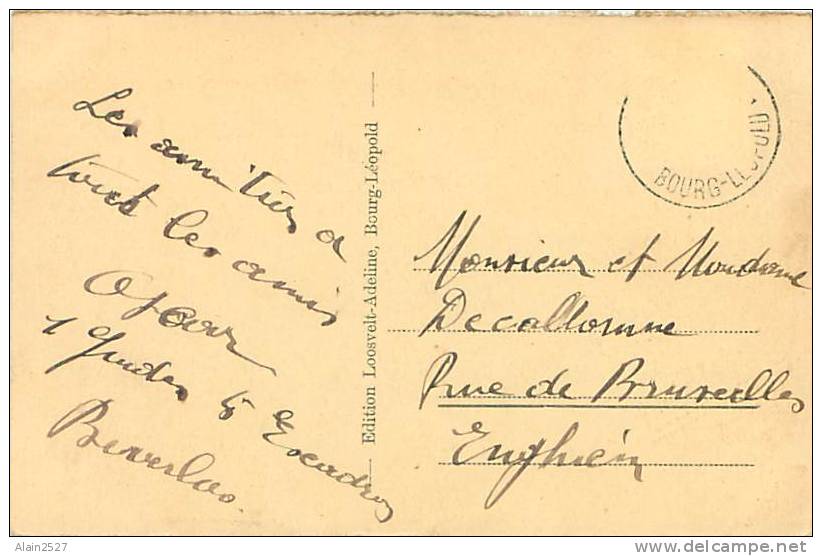 Les amitiés a
tout les amis
Oscar
1 Guides 5 Escadron
Beverloo.
Edition Loosvelt-Adeline, Bourg-Léopold
BOURG-LEOPOLD
Monsieur et Moudame
Decallonne
Rue de Bruxelles
Enghien
Alain2527
delcampe.net